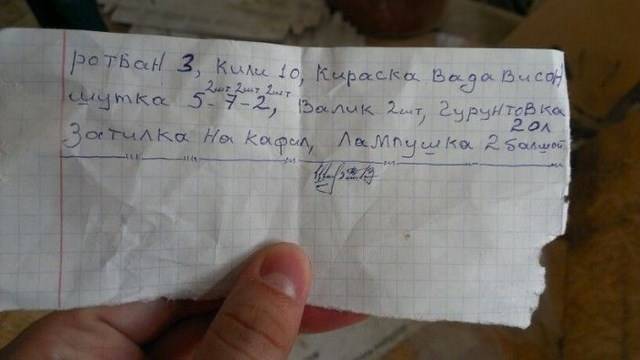 ротбан 3, кили 10, Кираска Вада Висон
шутка 5-7-2, Валик 2шт, гурунтовка
2шт 2шт 2шт
20л
Затилка на кафил, Лампушка 2 балшой